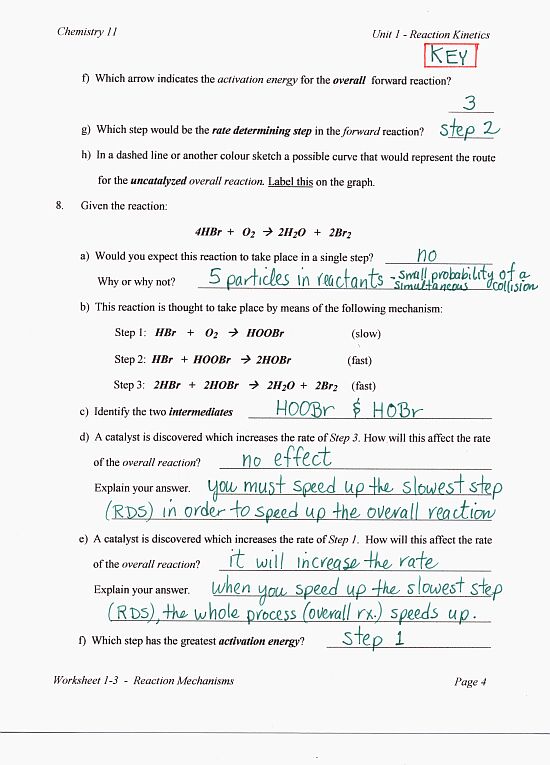 Chemistry 11 Unit 1 - Reaction Kinetics
KEY
f) Which arrow indicates the activation energy for the overall forward reaction?
3
g) Which step would be the rate determining step in the forward reaction? step 2
h) In a dashed line or another colour sketch a possible curve that would represent the route
for the uncatalyzed overall reaction. Label this on the graph.
8. Given the reaction:
4HBr + O₂ → 2H₂O + 2Br₂
a) Would you expect this reaction to take place in a single step? no
Why or why not? 5 particles in reactants - small probability of a
simultaneous collision
b) This reaction is thought to take place by means of the following mechanism:
Step 1: HBr + O₂ → HOOBr (slow)
Step 2: HBr + HOOBr → 2HOBr (fast)
Step 3: 2HBr + 2HOBr → 2H₂O + 2Br₂ (fast)
c) Identify the two intermediates HOOBr & HOBr
d) A catalyst is discovered which increases the rate of Step 3. How will this affect the rate
of the overall reaction? no effect
Explain your answer. you must speed up the slowest step
(RDS) in order to speed up the overall reaction
e) A catalyst is discovered which increases the rate of Step 1. How will this affect the rate
of the overall reaction? it will increase the rate
Explain your answer. when you speed up the slowest step
(RDS), the whole process (overall rx.) speeds up.
f) Which step has the greatest activation energy? step 1
Worksheet 1-3 - Reaction Mechanisms Page 4